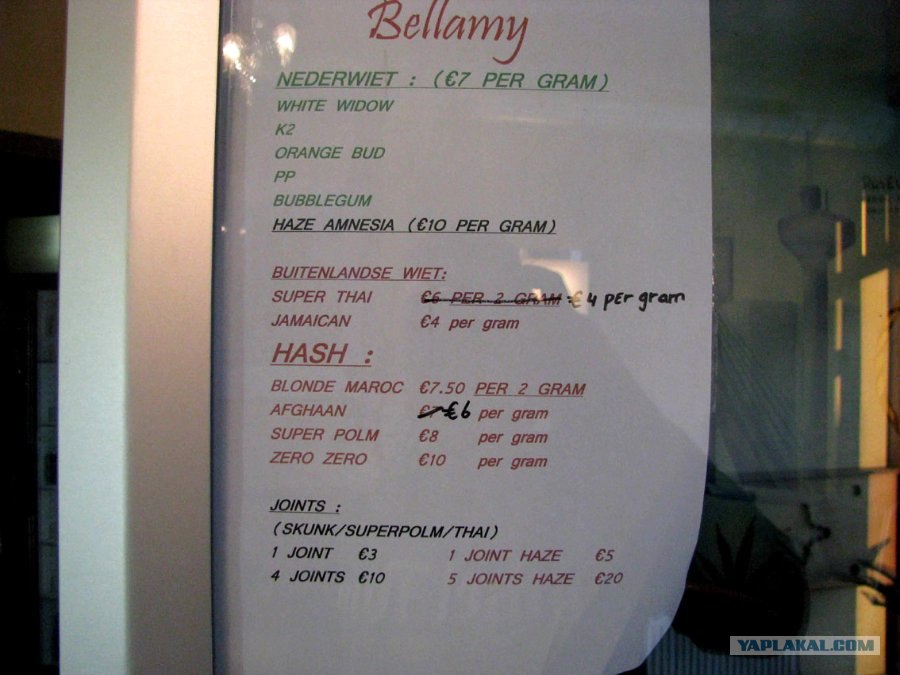 Bellamy
NEDERWIET : (€7 PER GRAM)
WHITE WIDOW
K2
ORANGE BUD
PP
BUBBLEGUM
HAZE AMNESIA (€10 PER GRAM)
BUITENLANDSE WIET:
SUPER THAI €6 PER 2 GRAM =€4 per gram
JAMAICAN €4 per gram
HASH :
BLONDE MAROC €7.50 PER 2 GRAM
AFGHAAN €7 €6 per gram
SUPER POLM €8 per gram
ZERO ZERO €10 per gram
JOINTS :
(SKUNK/SUPERPOLM/THAI)
1 JOINT €3 1 JOINT HAZE €5
4 JOINTS €10 5 JOINTS HAZE €20
YAPLAKAL.COM